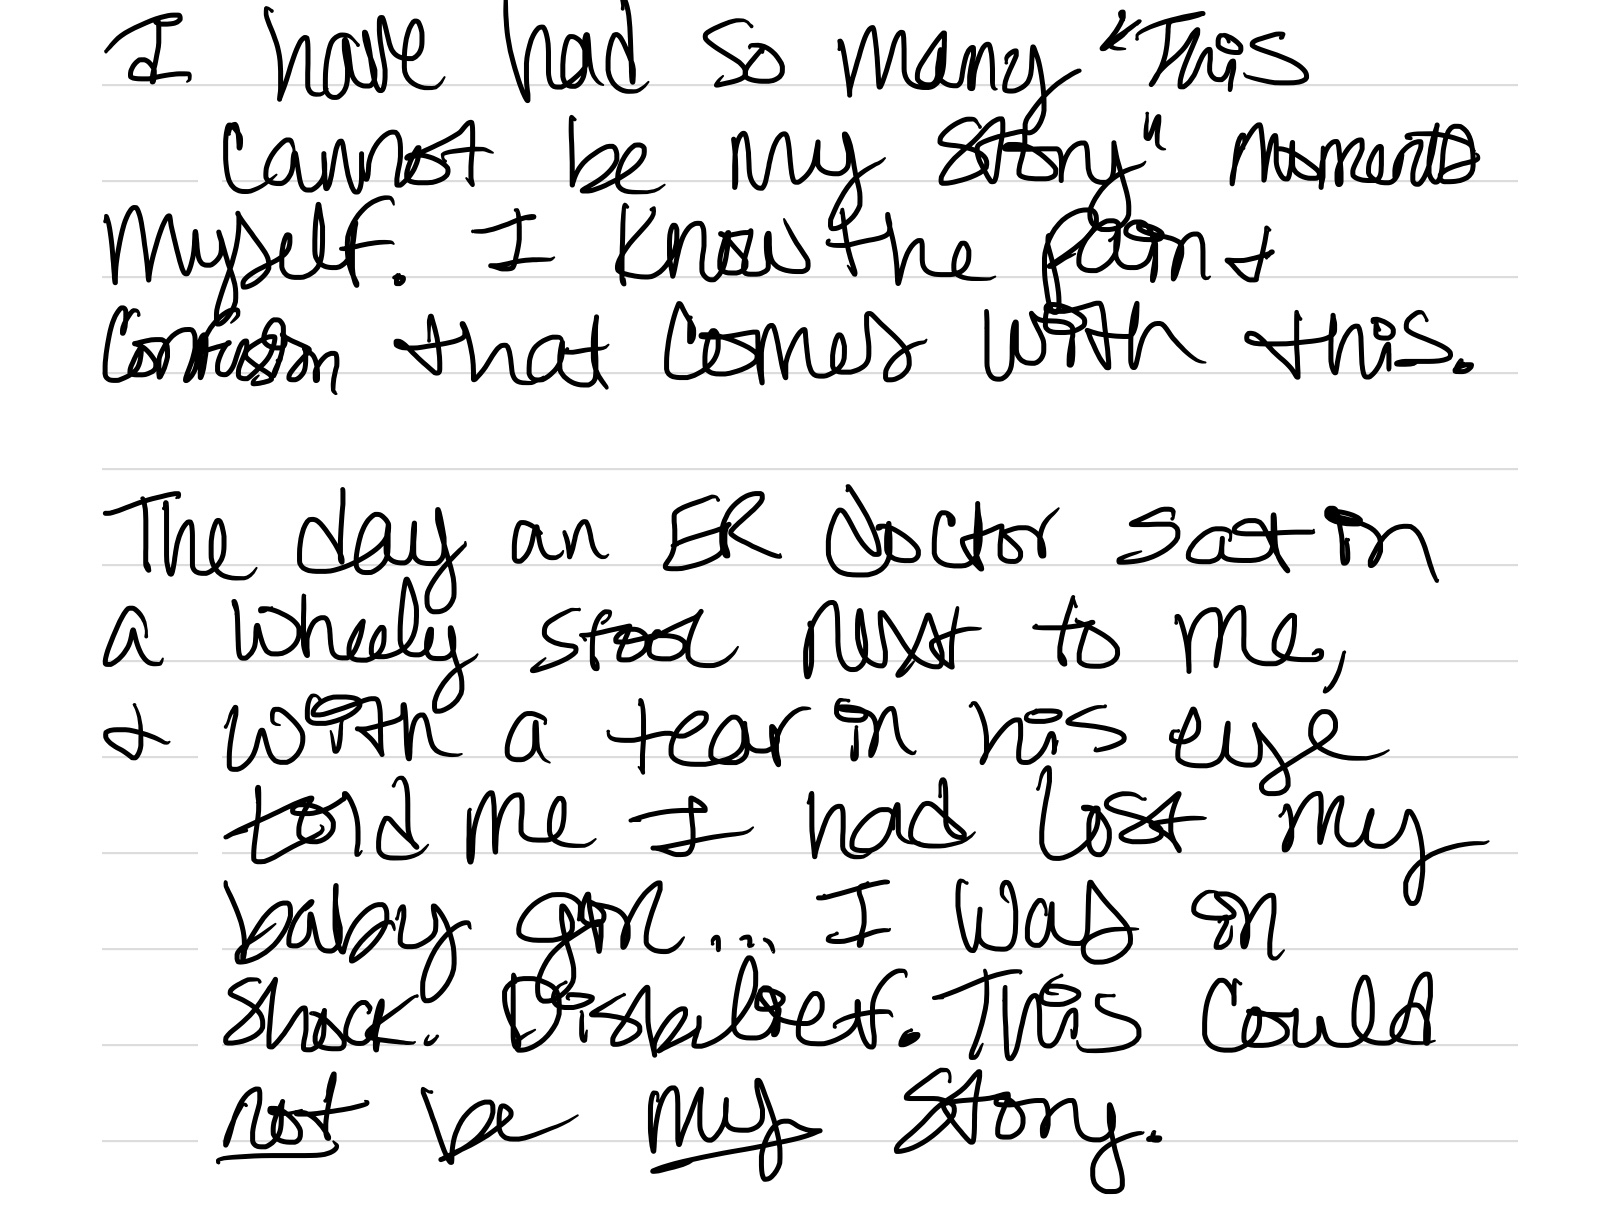 I have had so many "This
cannot be my story" moments
myself. I know the pain +
confusion that comes with this.
The day an ER doctor sat in
a wheely stool next to me,
+ with a tear in his eye
told me I had lost my
baby girl... I was in
shock. Disbelief. This could
not be my story.